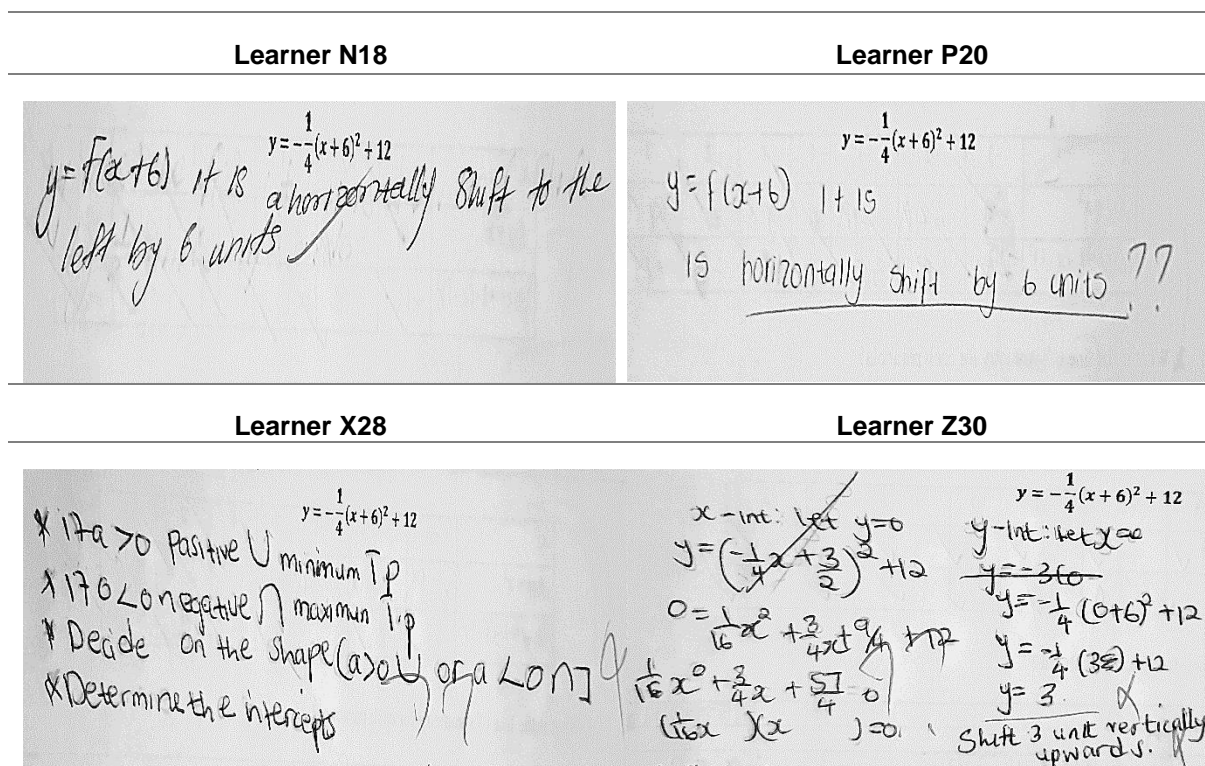 Learner N18
y = -1/4(x+6)² + 12
y = f(x+6) it is a horizontally shift to the
left by 6 units
Learner P20
y = -1/4(x+6)² + 12
y = f(x+6) it is
is horizontally shift by 6 units ??
Learner X28
y = -1/4(x+6)² + 12
* if a > 0 positive ∪ minimum Tp
* if a < 0 negative ∩ maximun T.p
* Decide on the shape (a>0 ∪ or a < 0 ∩]
* Determine the intercepts
Learner Z30
x-int: let y=0
y = (-1/4x + 3/2)² + 12
0 = 1/16x² + 3/4x + 9/4 + 12
1/16x² + 3/4x + 57/4 = 0
(1/16x )(x ) = 0
y = -1/4(x + 6)² + 12
y-int: let x=0
y = -360
y = -1/4(0+6)² + 12
y = -1/4(36) + 12
y = 3
Shift 3 unit vertically
upwards.